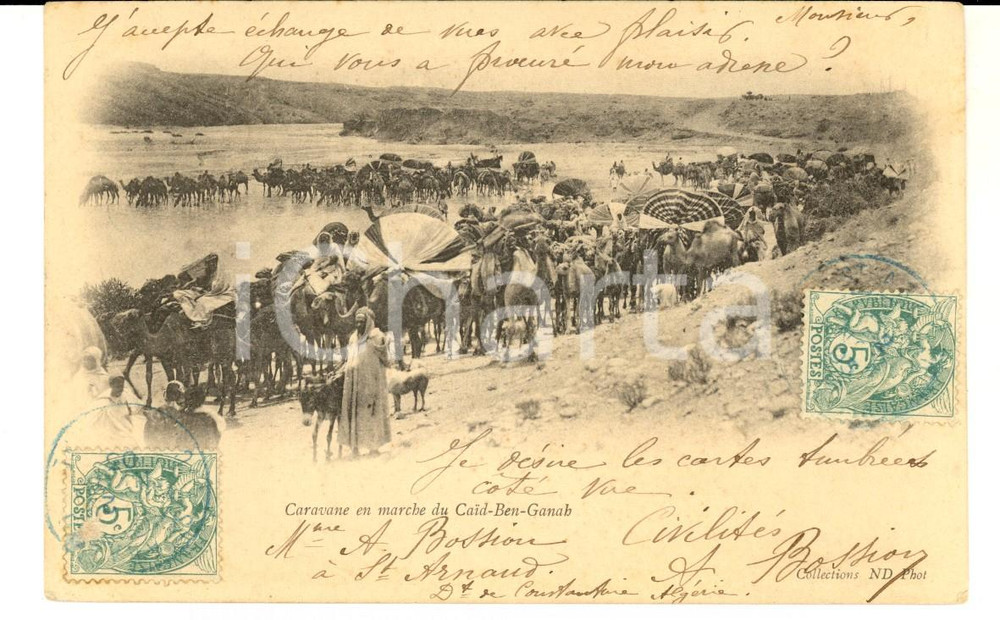 Monsieur,
J'accepte échange de vues avec plaisir.
Qui vous a procuré mon adresse ?
iCharta
POSTES
5c
Je désire les cartes timbrées
coté vue.
Caravane en marche du Caïd-Ben-Ganah
Civilités
Mme A Bossion
A Bossion
à St Arnaud.
Collections ND Phot
Dt de Constantine Algérie.
POSTES
5c